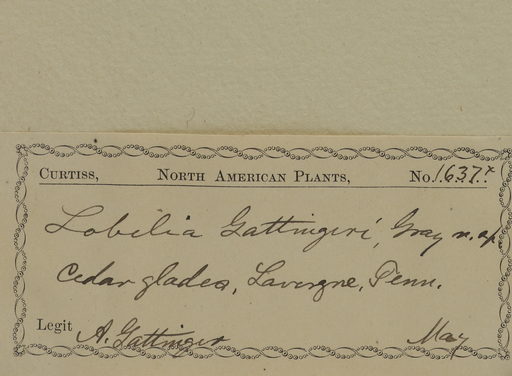 CURTISS, NORTH AMERICAN PLANTS, No. 1637*
Lobelia Gattingeri, Gray n. sp.
Cedar glades, Lavergne, Tenn.
Legit A. Gattinger May